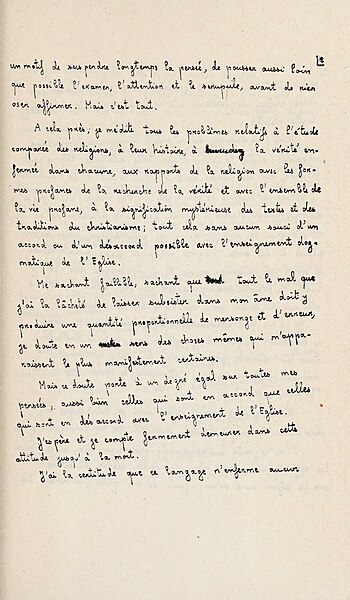 12
un motif de suspendre longtemps la pensée, de pousser aussi loin
que possible l'examen, l'attention et le scrupule, avant de rien
oser affirmer. Mais c'est tout.
A cela près, je médite tous les problèmes relatifs à l'étude
comparée des religions, à leur histoire, à la vérité en-
fermée dans chacune, aux rapports de la religion avec les for-
mes profanes de la recherche de la vérité et avec l'ensemble de
la vie profane, à la signification mystérieuse des textes et des
traditions du christianisme ; tout cela sans aucun souci d'un
accord ou d'un désaccord possible avec l'enseignement dog-
matique de l'Eglise.
Me sachant faillible, sachant que tout le mal que
j'ai la lâcheté de laisser subsister dans mon âme doit y
produire une quantité proportionnelle de mensonge et d'erreur,
je doute en un sens des choses mêmes qui m'appa-
raissent le plus manifestement certaines.
Mais ce doute porte à un degré égal sur toutes mes
pensées, aussi bien celles qui sont en accord que celles
qui sont en désaccord avec l'enseignement de l'Eglise.
J'espère et je compte fermement demeurer dans cette
attitude jusqu'à la mort.
J'ai la certitude que ce langage n'enferme aucun